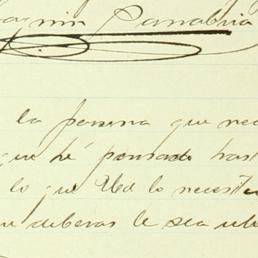 min Sanabria
la persona que nec
que hé pensado hast
lo que Ud lo necesit
deberas le sea